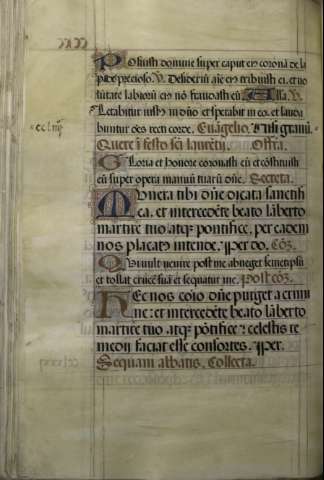 Posuisti domine super caput eius coronā de la
pide precioso. V. Desideriū aīe eius tribuisti ei. et uo
lūtate labiorū eius nō fraudasti eū. Alla. V.
Letabitur iustus in dn̄o et sperabit in eo. et lauda
buntur oēs recti corde. Euāgeliō. Nisi granū.
Quere ī festo sci laurētij. Offra.
Gloria et honore coronasti eū et cōstituisti
eū super opera manuū tuarū dn̄e. Secreta.
Munera tibi dn̄e dicata sanctifi
ca. et intercedēte beato lāberto
martire tuo atq; pontifice. per eadem
nos placatus intende. Per do. Cōio.
Qui vult venire post me abneget semetipsū
et tollat crucē suā et sequatur me. Postcōio.
Hec nos cōio dn̄e purget a crimi
ne: et intercedēte beato lāberto
martire tuo atq; pōtifice: celestis re
medij faciat esse consortes. Per.
Sequam albatis. Collecta.